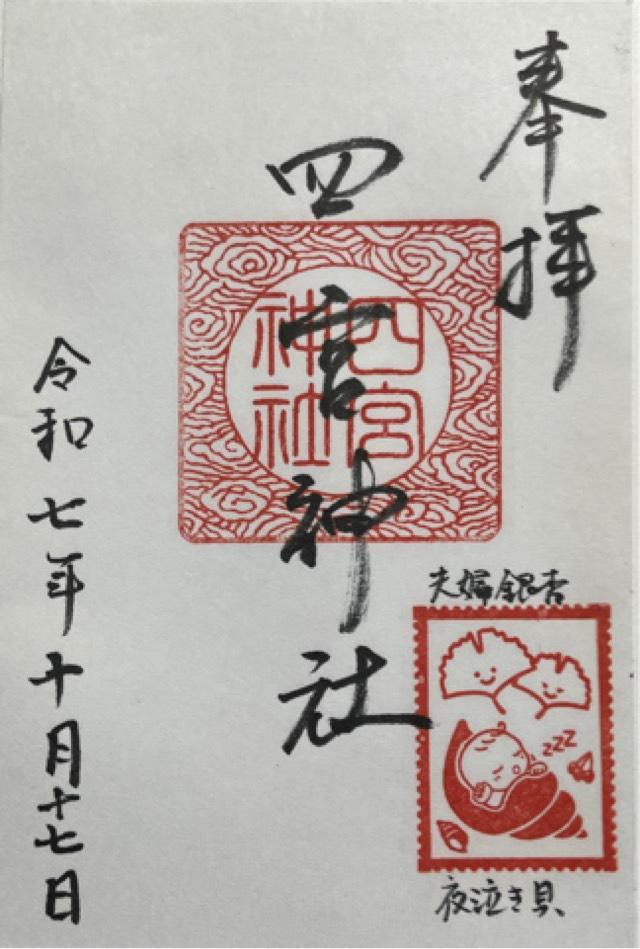 奉拝
四宮神社
四宮
神社
夫婦銀杏
zzz
夜泣き貝
令和七年十月十七日